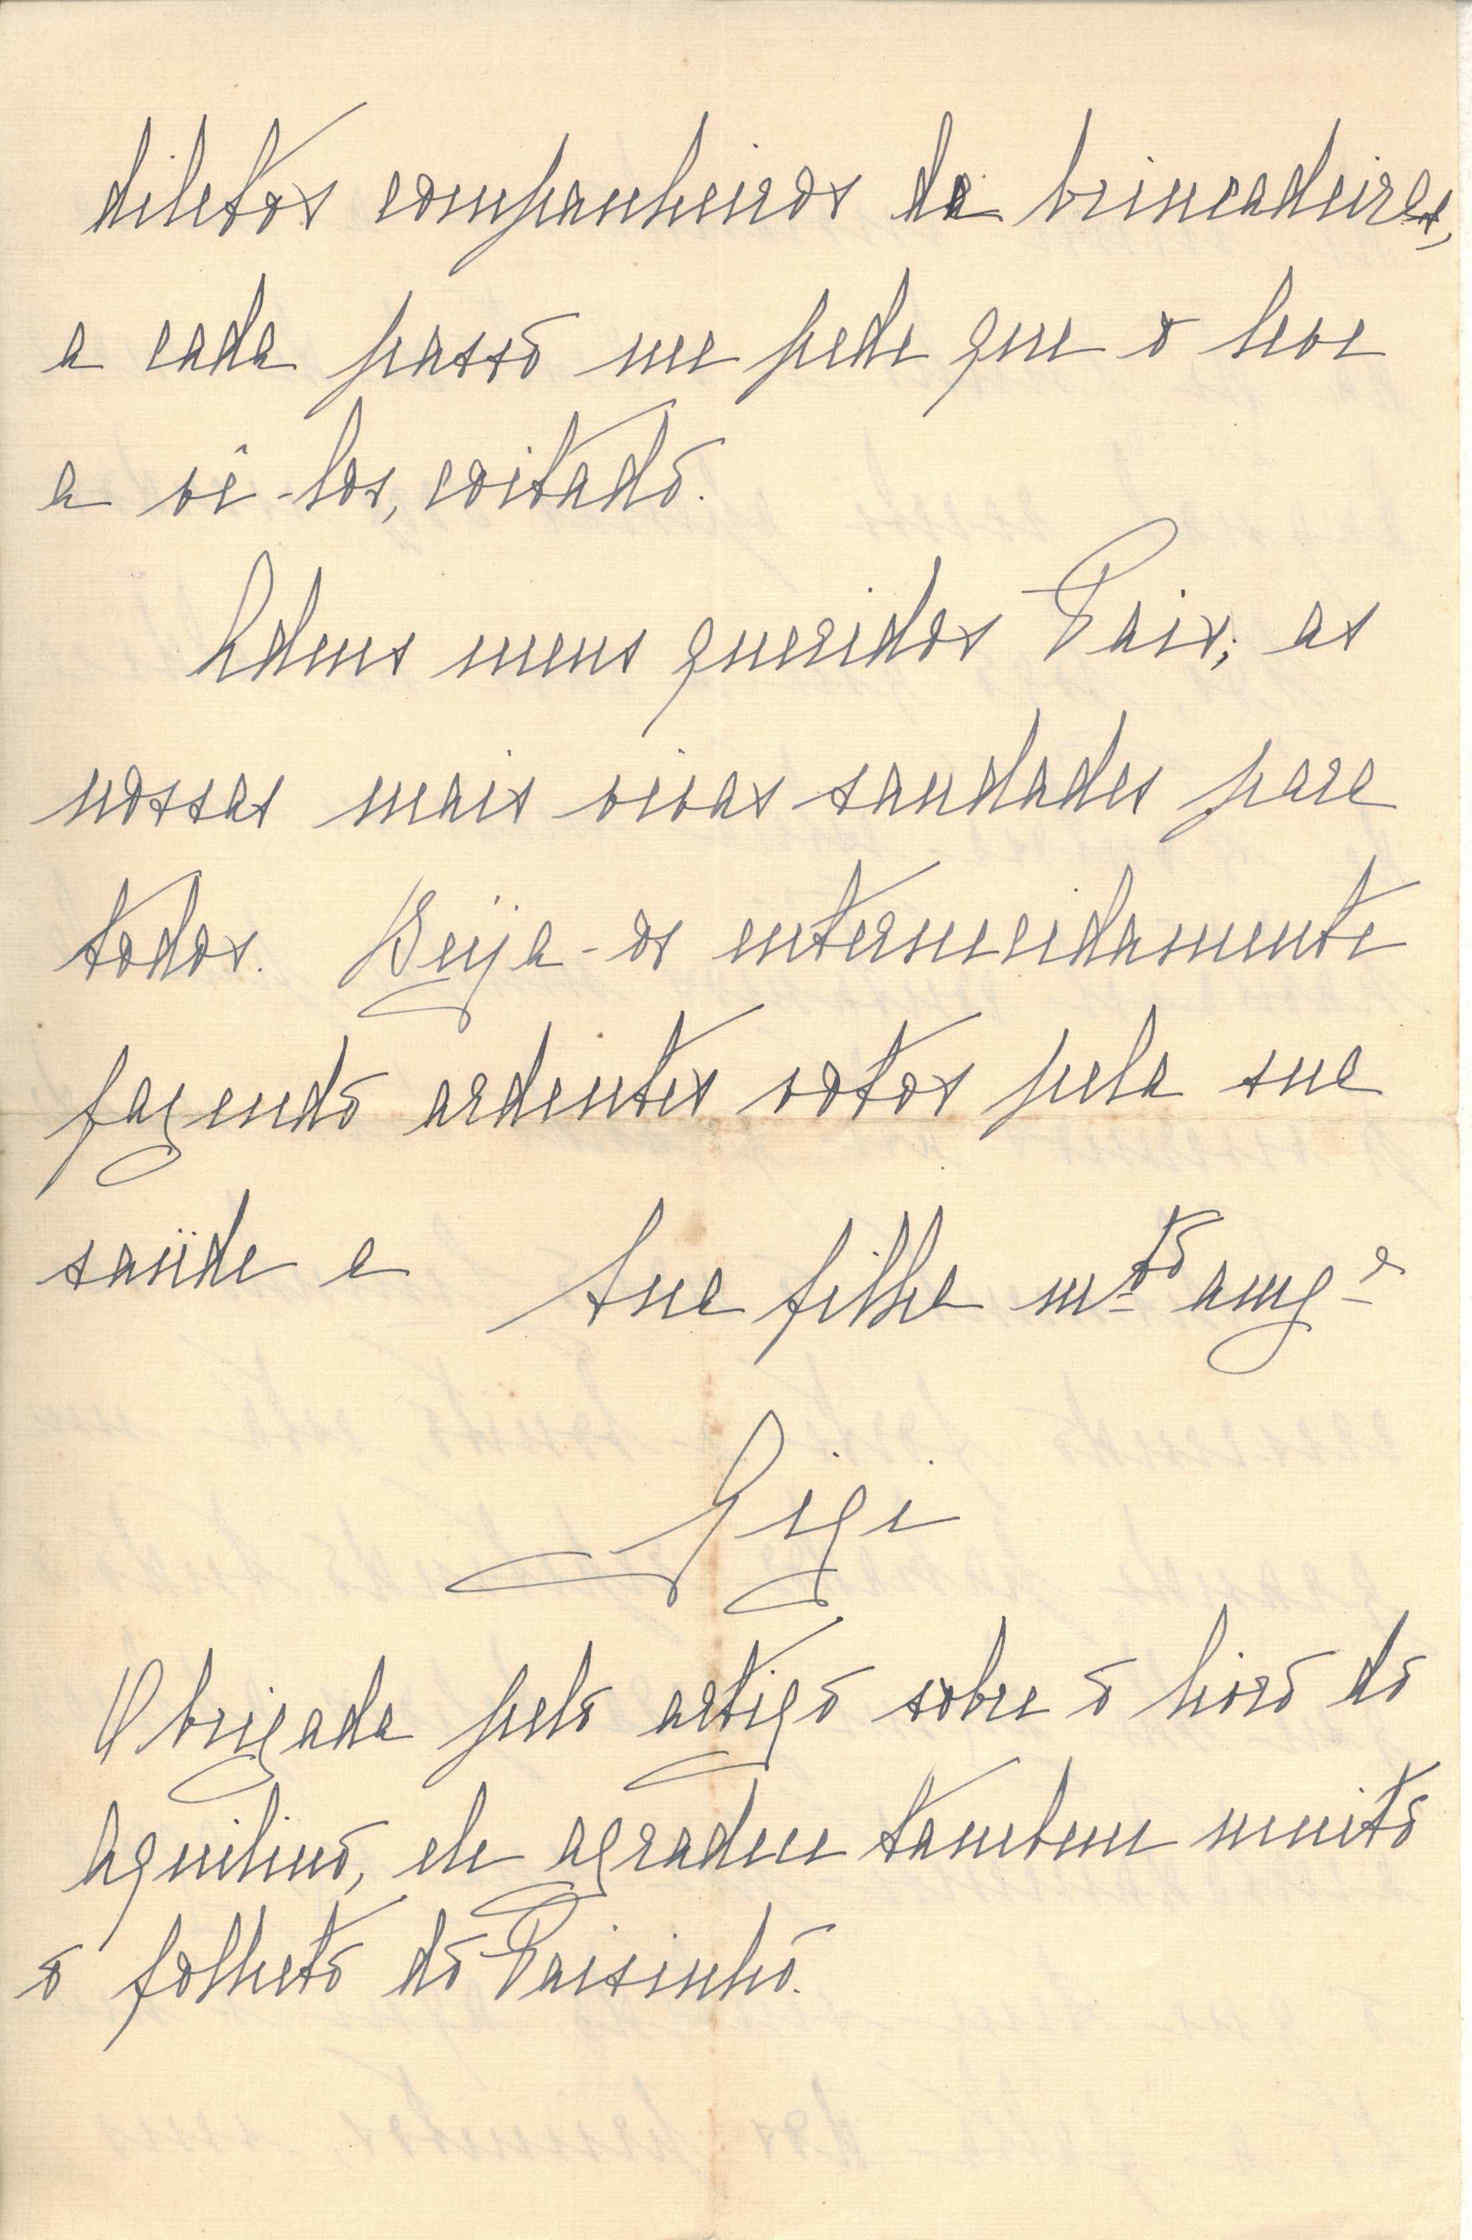 diletos companheiros de brincadeiras,
a cada passo me pede que o leve
a vê-los, coitado.
Adeus meus queridos Pais; as
nossas mais vivas saudades para
todos. Beija-os enternecidamente
fazendo ardentes votos pela sua
saúde a sua filha mto amga
Gigi
Obrigada pelo artigo sobre o livro do
Aquilino, ele agradece tambem muito
o folheto do Paisinho.